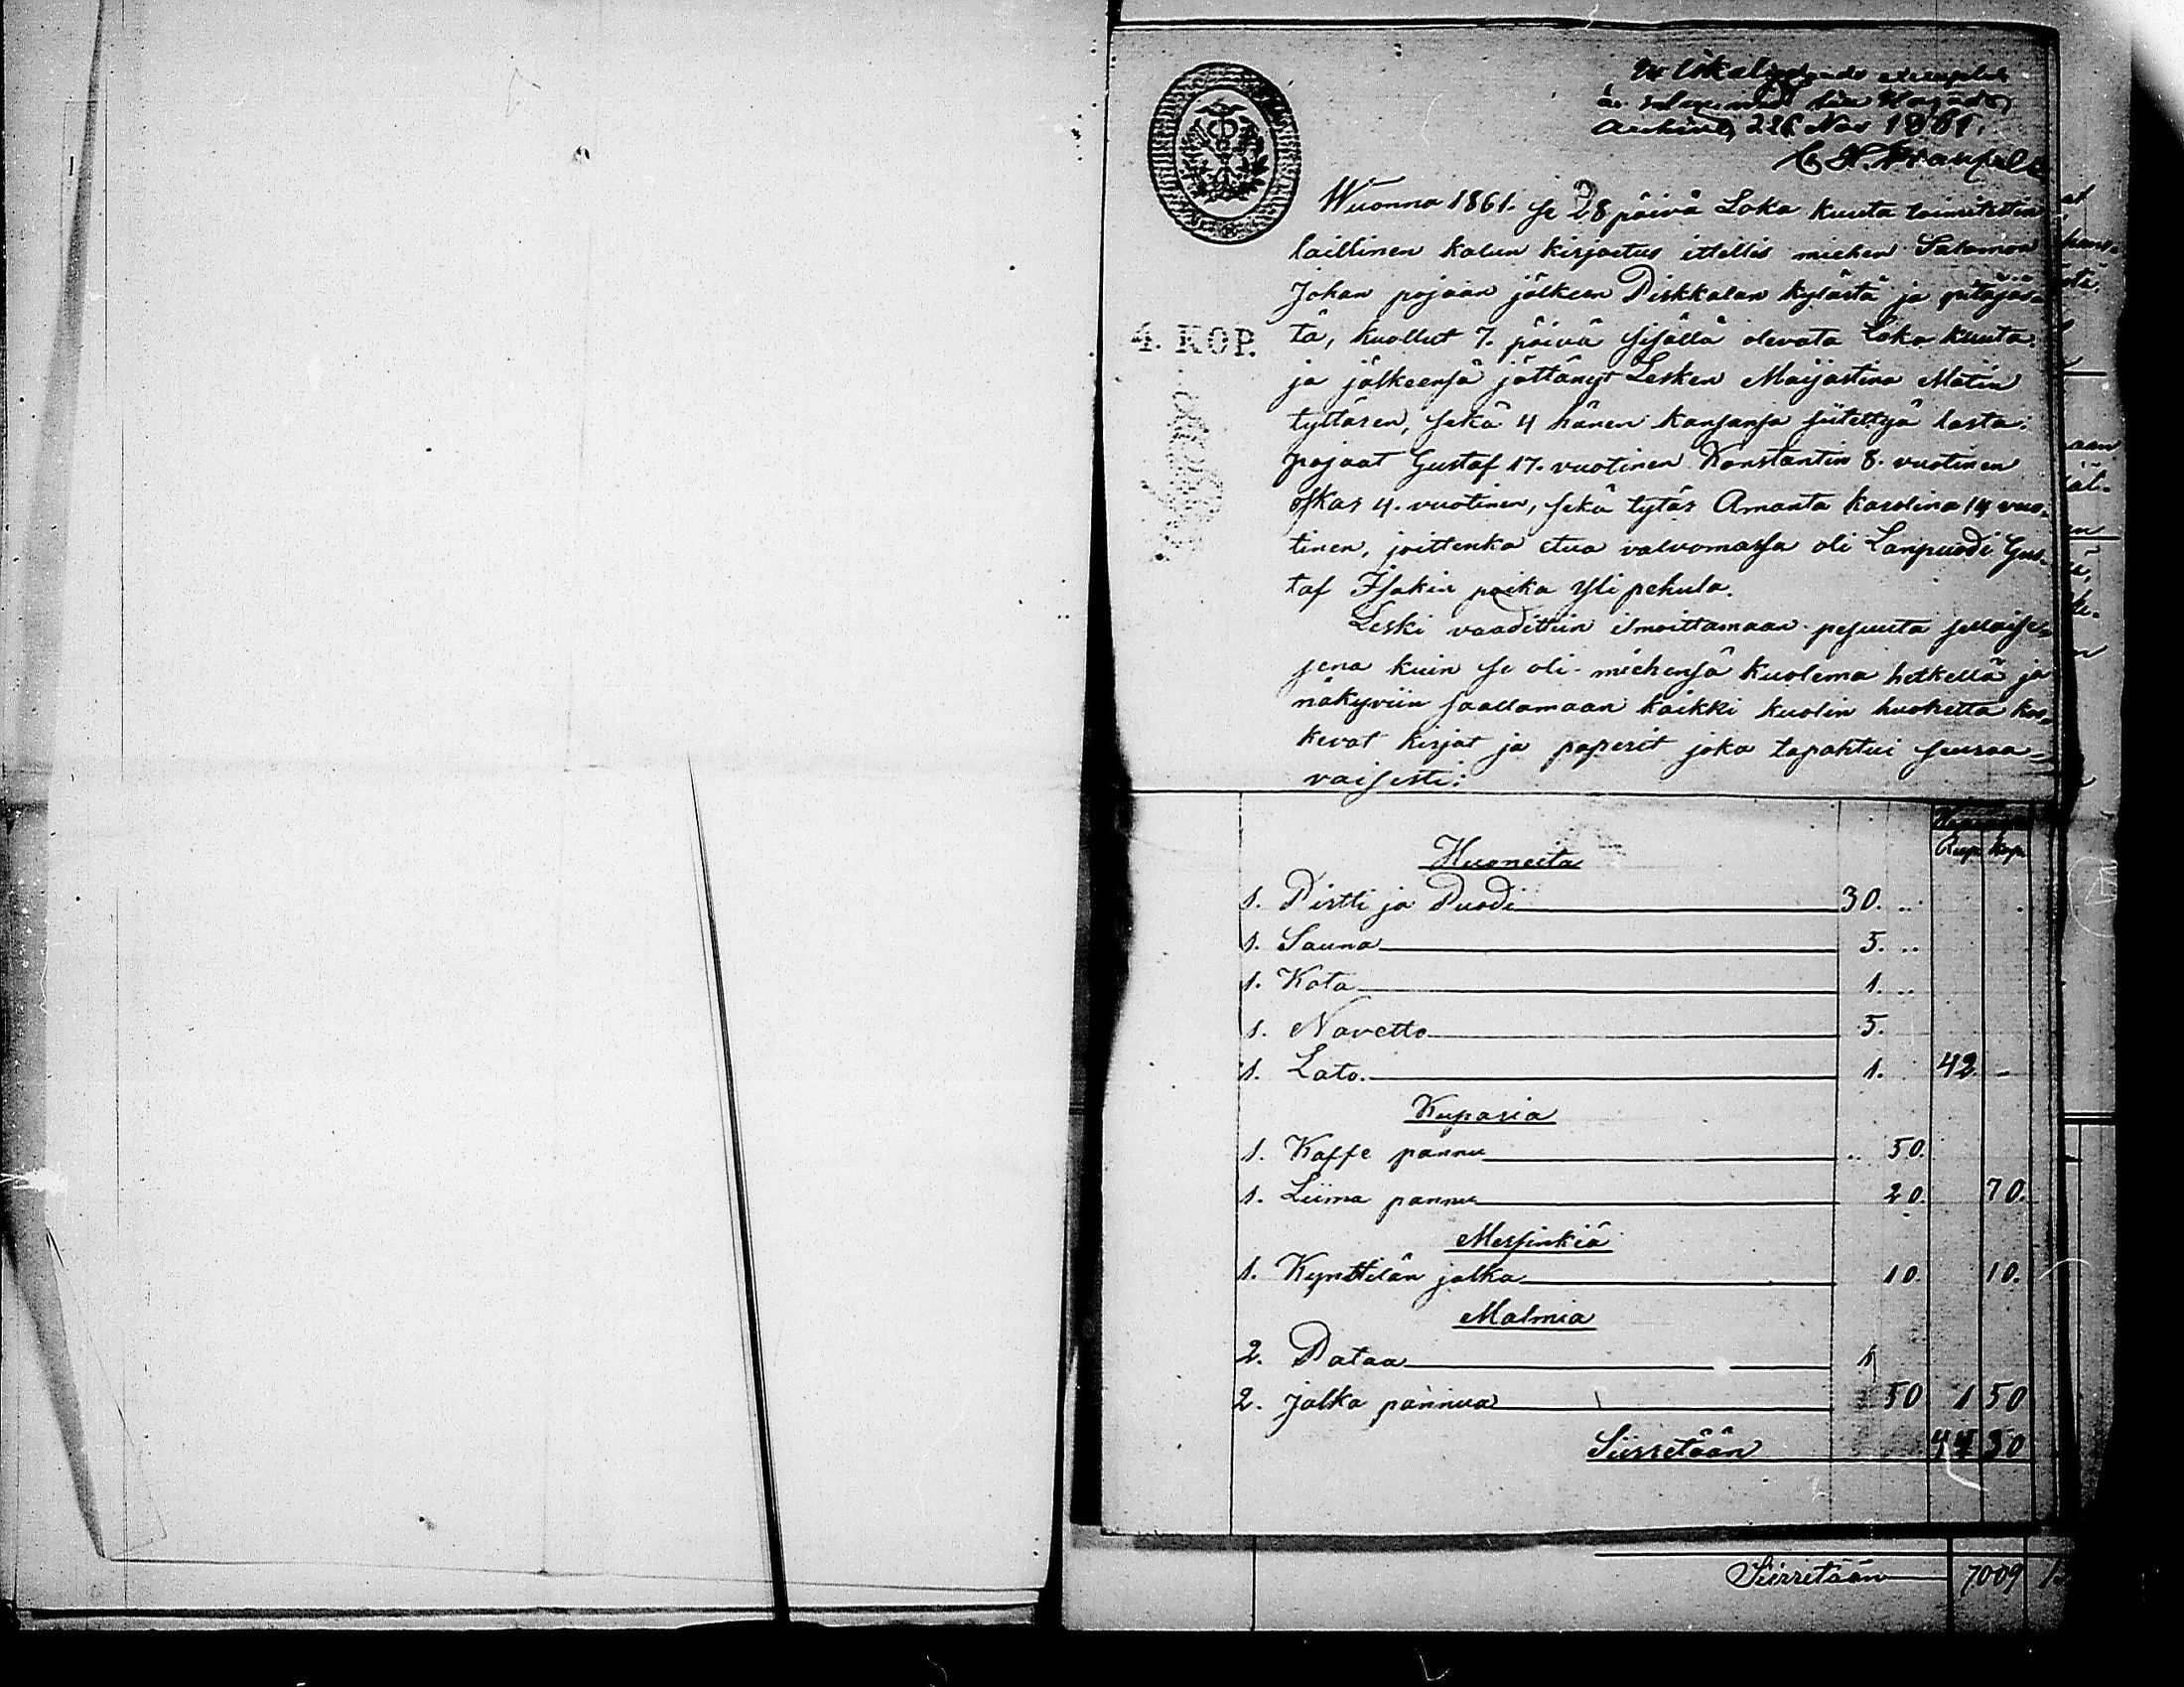 Archivet, 226 Nov 1861.
Wuonna 1861. se 28 päivä Loka kuuta toimitettin
laillinen kalun kirjoitus itellis miehen Salomon
Johan pojaan jälkeen Pirkkalan kylästä ja pitäjäs-
4. KOP.
tä, kuollut 7. päivä sisällä olevata Loka kuuta.
ja jälkeensä jättänyt Lesken Maijastina Matin
tyttären, sekä 4 hänen kansansa siitettyä lasta:
pojaat Gustaf 17. vuotinen Konstantin 8. vuotinen
Oskar 4. vuotinen, sekä tytär Amanta karolina 14 vuo-
tinen, joittenka etua valvomassa oli Lanpuodi Gus-
taf Isakin poika Yli pehula.
Leski vaadittiin ilmoittamaan pesuuta sellaise-
sena kuin se oli miehensä kuolema hetkellä ja
näkyviin saattamaan kaikki kuolin huonetta kos-
kevat kirjat ja paperit joka tapahtui seuraa-
vaisesti:
Rup. Kop.
Huoneita
1. Pirtti ja Puodi 30. ..
1. Sauna 5. ..
1. Kota 1. ..
1. Navetto 5.
1. Lato. 1. 42 -
Kuparia
1. Kaffe pannu .. 50.
1. Liima pannu 20. 70.
Messinkiä
1. Kynttilän jalka 10. 10.
Malmia
2. Pataa 1
2. jalka pannua 50 1 50
Siirretään 44 30
Siirretään 7009